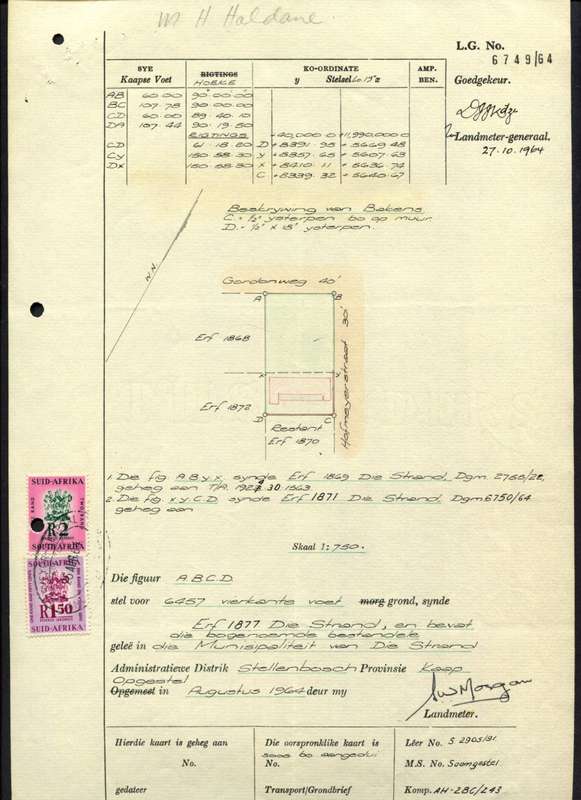 M H Haldane
L.G. No.
6749/64
Goedgekeur.
Landmeter-generaal.
27.10.1964
SYE
Kaapse Voet
RIGTINGS
HOEKE
KO-ORDINATE
y Stelsel Lo.19° x
AMP.
BEN.
AB 60.00 90.00.00
BC 107.78 90.00.00
CD 60.00 89.40.10
DA 107.44 90.19.50
RIGTINGS +40,000.0 +11,990,000.0
CD 61.18.20 D +8391.95 +5669.48
Cy 150.58.30 y +8357.65 +5607.63
Dx 150.58.30 x +8410.11 +5636.74
C +8339.32 +5640.67
Beskrywing van Bakens
C. = ½" ysterpen bo op muur.
D. = ½" x 18" ysterpen.
N.N.
Gordonweg 40'
A B
Erf 1868
Hofmeyerstraat 30'
x y
Erf 1872
D C
Restant
Erf 1870
1. Die fig A.B.y.x. synde Erf 1869 Die Strand, Dgm. 2766/26,
geheg aan T/A. 1927.30.1563
2. Die fig. x.y.C.D. synde Erf 1871 Die Strand, Dgm. 6750/64
geheg aan
Skaal 1:750.
SUID-AFRIKA
R2
SOUTH AFRICA
SOUTH AFRICA
R1·50
SUID-AFRIKA
Die figuur A.B.C.D.
stel voor 6457 vierkante voet morg grond, synde
Erf 1877 Die Strand, en bevat
die bogenoemde bestandele
geleë in die Munisipaliteit van Die Strand
Administratiewe Distrik Stellenbosch Provinsie Kaap
Opgestel
Opgemeet in Augustus 1964 deur my
Landmeter.
Hierdie kaart is geheg aan
No.
gedateer
Die oorspronklike kaart is
soos bo aangedui
No.
Transport/Grondbrief
Lêer No. S 2905/91
M.S. No. Saamgestel
Komp. AH-2BC/243